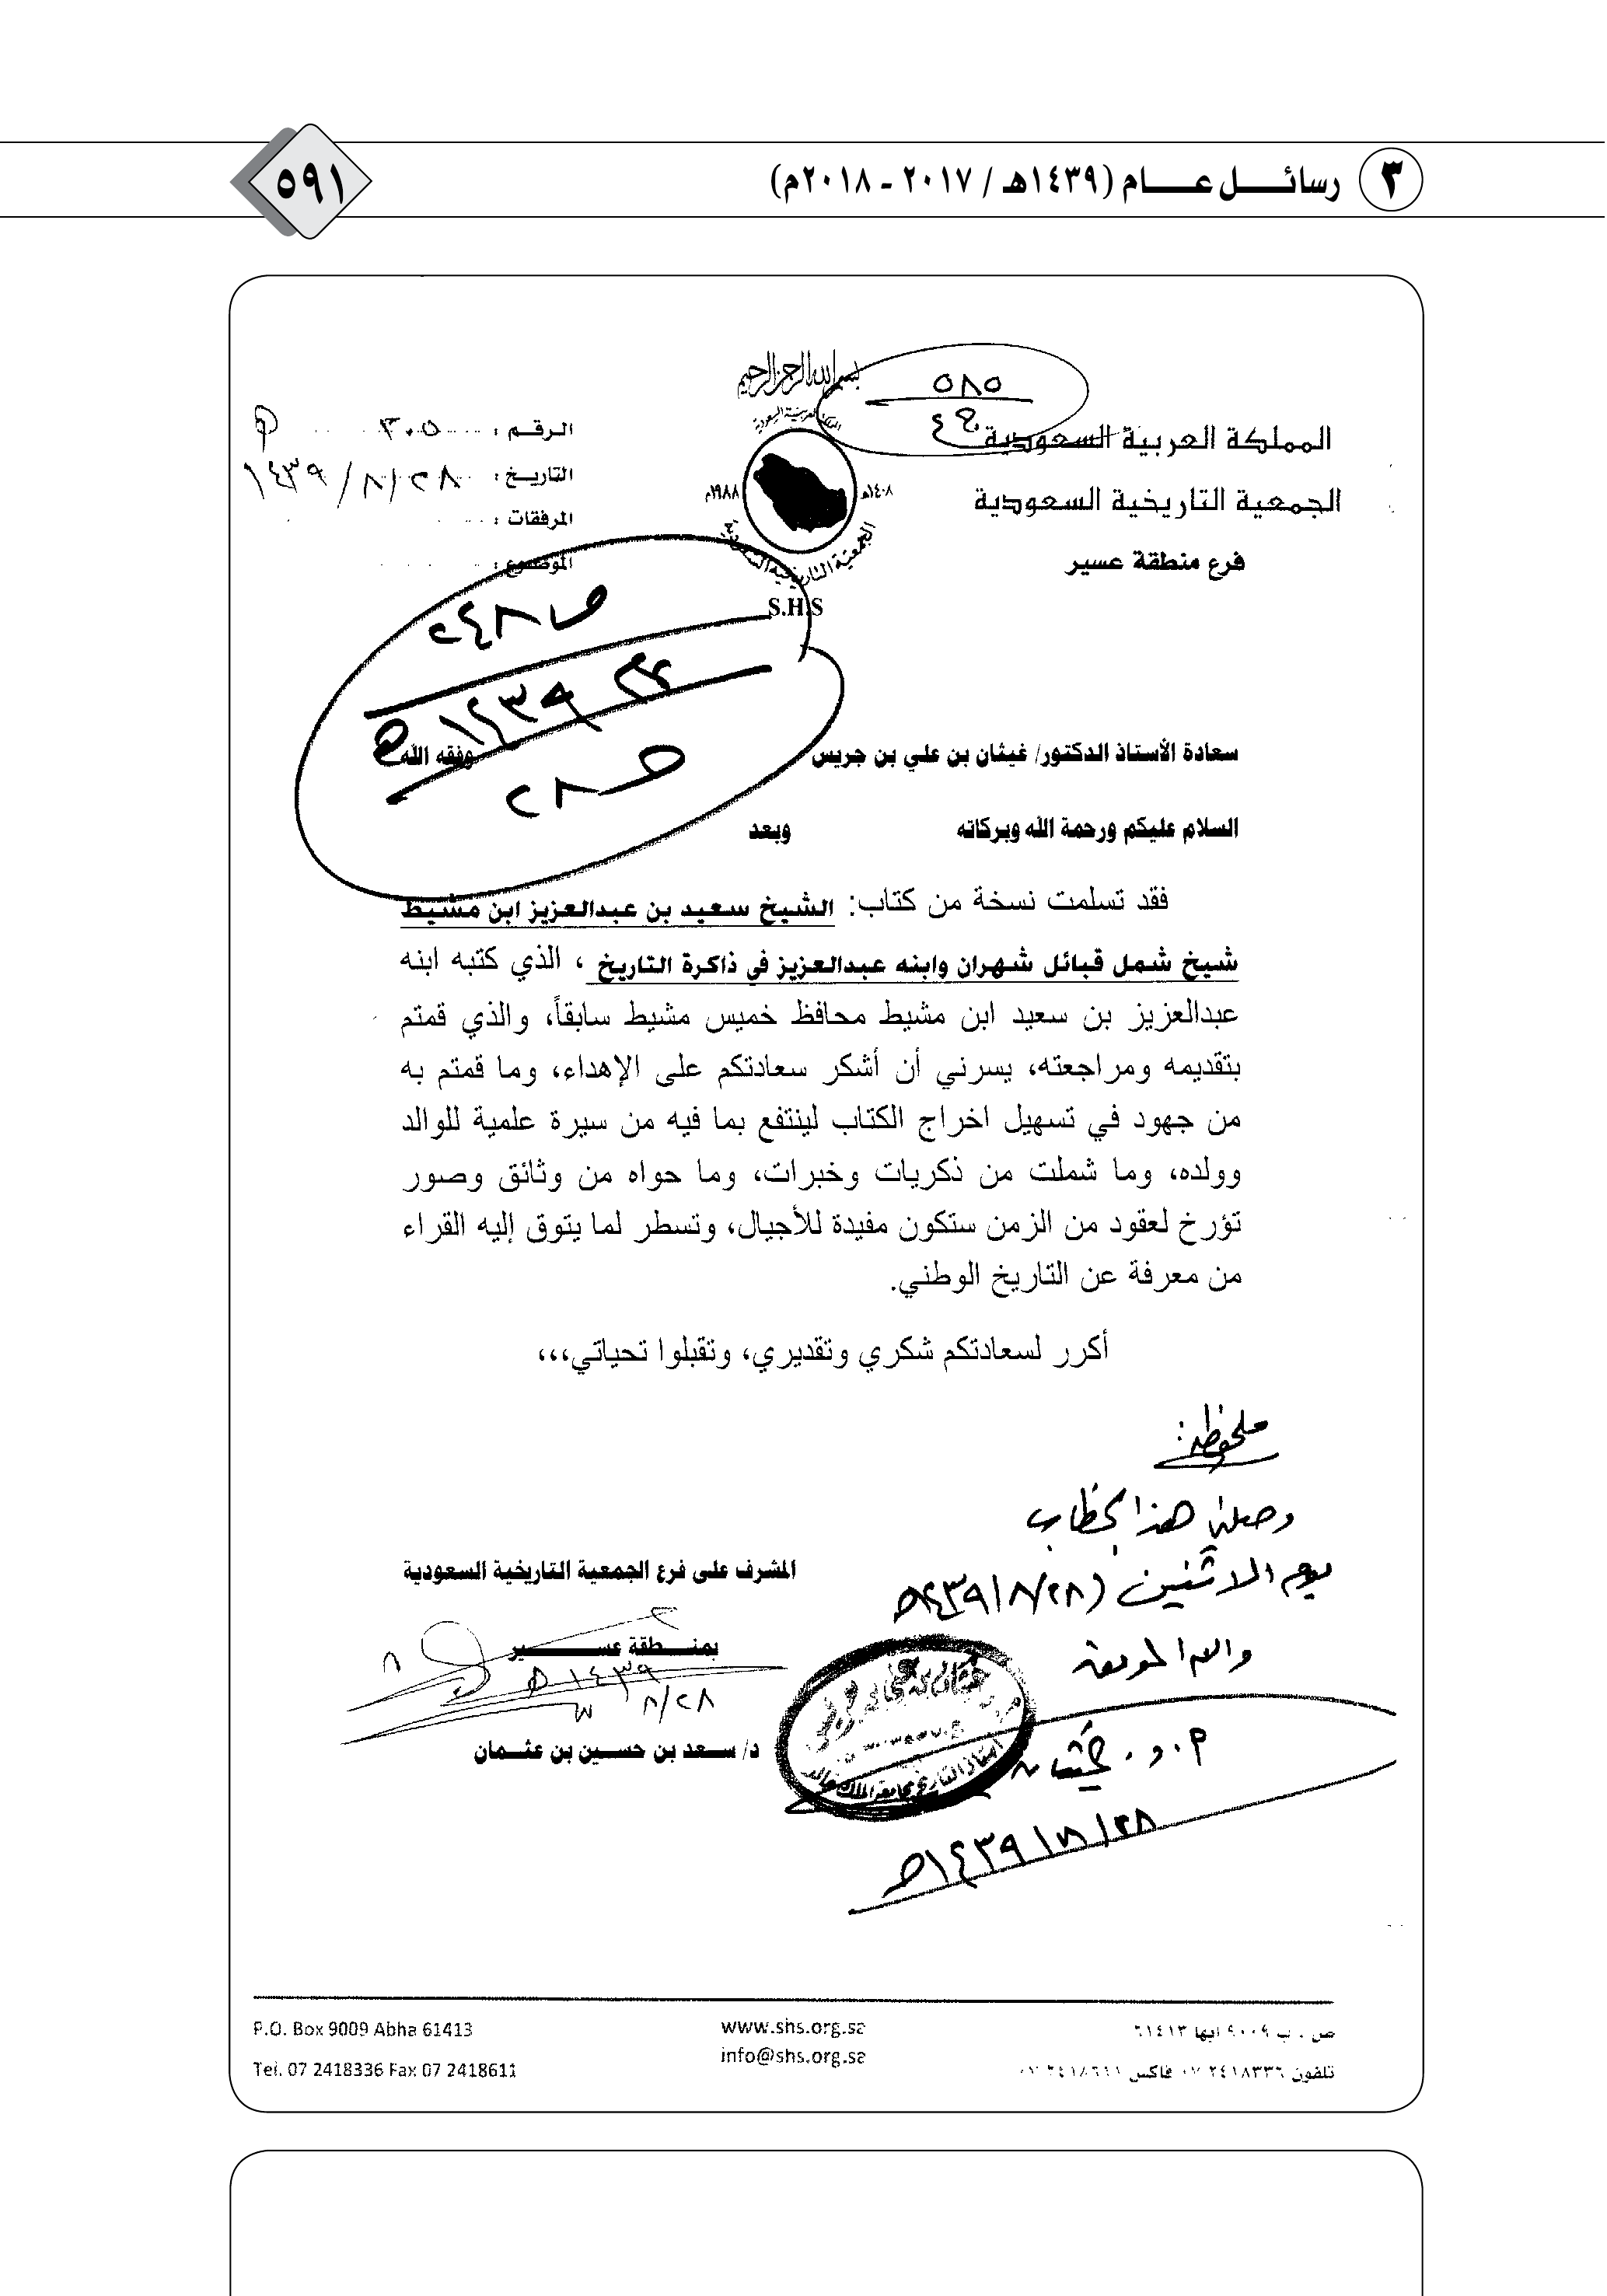 ٣ رسائل عام (١٤٣٩هـ / ٢٠١٧ - ٢٠١٨م)
٥٩١
بسم الله الرحمن الرحيم
٥٨٥
المملكة العربية السعودية
الجمعية التاريخية السعودية
فرع منطقة عسير
١٤٠٨هـ
١٩٨٨م
الجمعية التاريخية السعودية
S.H.S
الرقم : ٣٠٥
التاريخ : ٢٨/٨/١٤٣٩
المرفقات :
الموضوع :
١٤٣٩
سعادة الأستاذ الدكتور/ غيثان بن علي بن جريس وفقه الله
السلام عليكم ورحمة الله وبركاته وبعد
فقد تسلمت نسخة من كتاب: الشيخ سعيد بن عبدالعزيز ابن مشيط
شيخ شمل قبائل شهران وابنه عبدالعزيز في ذاكرة التاريخ ، الذي كتبه ابنه
عبدالعزيز بن سعيد ابن مشيط محافظ خميس مشيط سابقاً، والذي قمتم
بتقديمه ومراجعته، يسرني أن أشكر سعادتكم على الإهداء، وما قمتم به
من جهود في تسهيل اخراج الكتاب لينتفع بما فيه من سيرة علمية للوالد
وولده، وما شملت من ذكريات وخبرات، وما حواه من وثائق وصور
تؤرخ لعقود من الزمن ستكون مفيدة للأجيال، وتسطر لما يتوق إليه القراء
من معرفة عن التاريخ الوطني.
أكرر لسعادتكم شكري وتقديري، وتقبلوا تحياتي،،،
ملحوظة:
وصلني هذا الخطاب
يوم الاثنين (٢٨/٨/١٤٣٩هـ
والله الموفق
أ.د. غيثان
٢٨/٨/١٤٣٩هـ
المشرف على فرع الجمعية التاريخية السعودية
بمنطقة عسير
١٤٣٩هـ
٢٨/٨
د/ سعد بن حسين بن عثمان
أستاذ التاريخ بجامعة الملك خالد
ص . ب ٩٠٠٩ ابها ٦١٤١٣
تلفون ٢٤١٨٣٣٦ ٠٧ فاكس ٢٤١٨٦١١ ٠٧
www.shs.org.sa
info@shs.org.sa
P.O. Box 9009 Abha 61413
Tel. 07 2418336 Fax 07 2418611